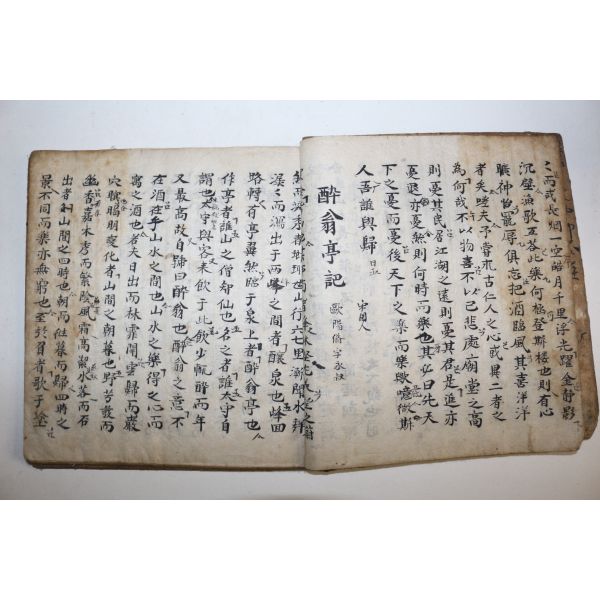 而或長烟一空皓月千里浮光躍金靜影
沉璧漁歌互答此樂何極登斯樓也則有心
曠神怡寵辱俱忘把酒臨風其喜洋洋
者矣嗟夫予嘗求古仁人之心或異二者之
為何哉不以物喜不以己悲處廟堂之高
則憂其民居江湖之遠則憂其君是進亦
憂退亦憂然則何時而樂也其必曰先天
下之憂而憂後天下之樂而樂歟噫微斯
人吾誰與歸
宋國人
醉翁亭記
歐陽脩字永叔
而深秀者瑯琊也山行六七里漸聞水聲
潺潺而瀉出于兩峰之間者釀泉也峰回
路轉有亭翼然臨于泉上者醉翁亭也
作亭者誰山之僧智仙也名之者誰太守自
謂也太守與客來飲于此飲少輒醉而年
又最高故自號曰醉翁也醉翁之意不
在酒在乎山水之間也山水之樂得之心而
寓之酒也若夫日出而林霏開雲歸而巖
穴暝晦明變化者山間之朝暮也野芳發而
幽香嘉木秀而繁陰風霜高潔水落而石
出者山間之四時也朝而往暮而歸四時之
景不同而樂亦無窮也至於負者歌于塗